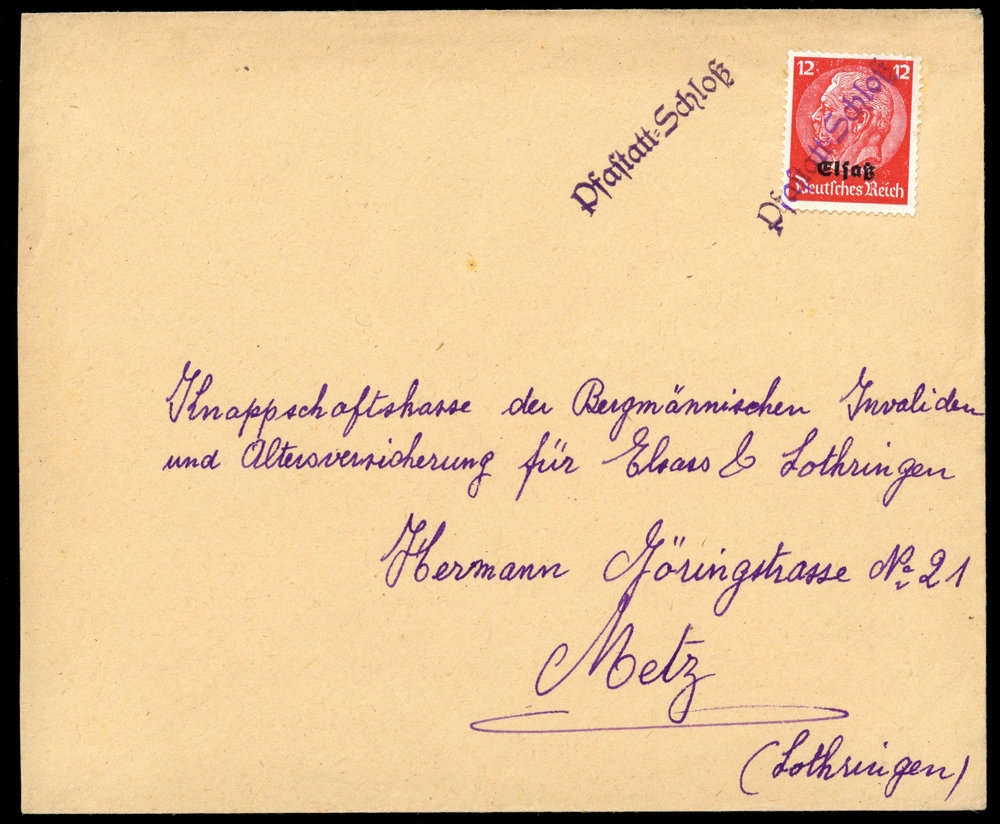 Pfastatt=Schloß
12 12
Pfastatt=Schloß
Elsaß
Deutsches Reich
Knappschaftskasse der Bergmännischen Invaliden
und Altersversicherung für Elsass & Lothringen
Hermann Göringstrasse No 21
Metz
(Lothringen)